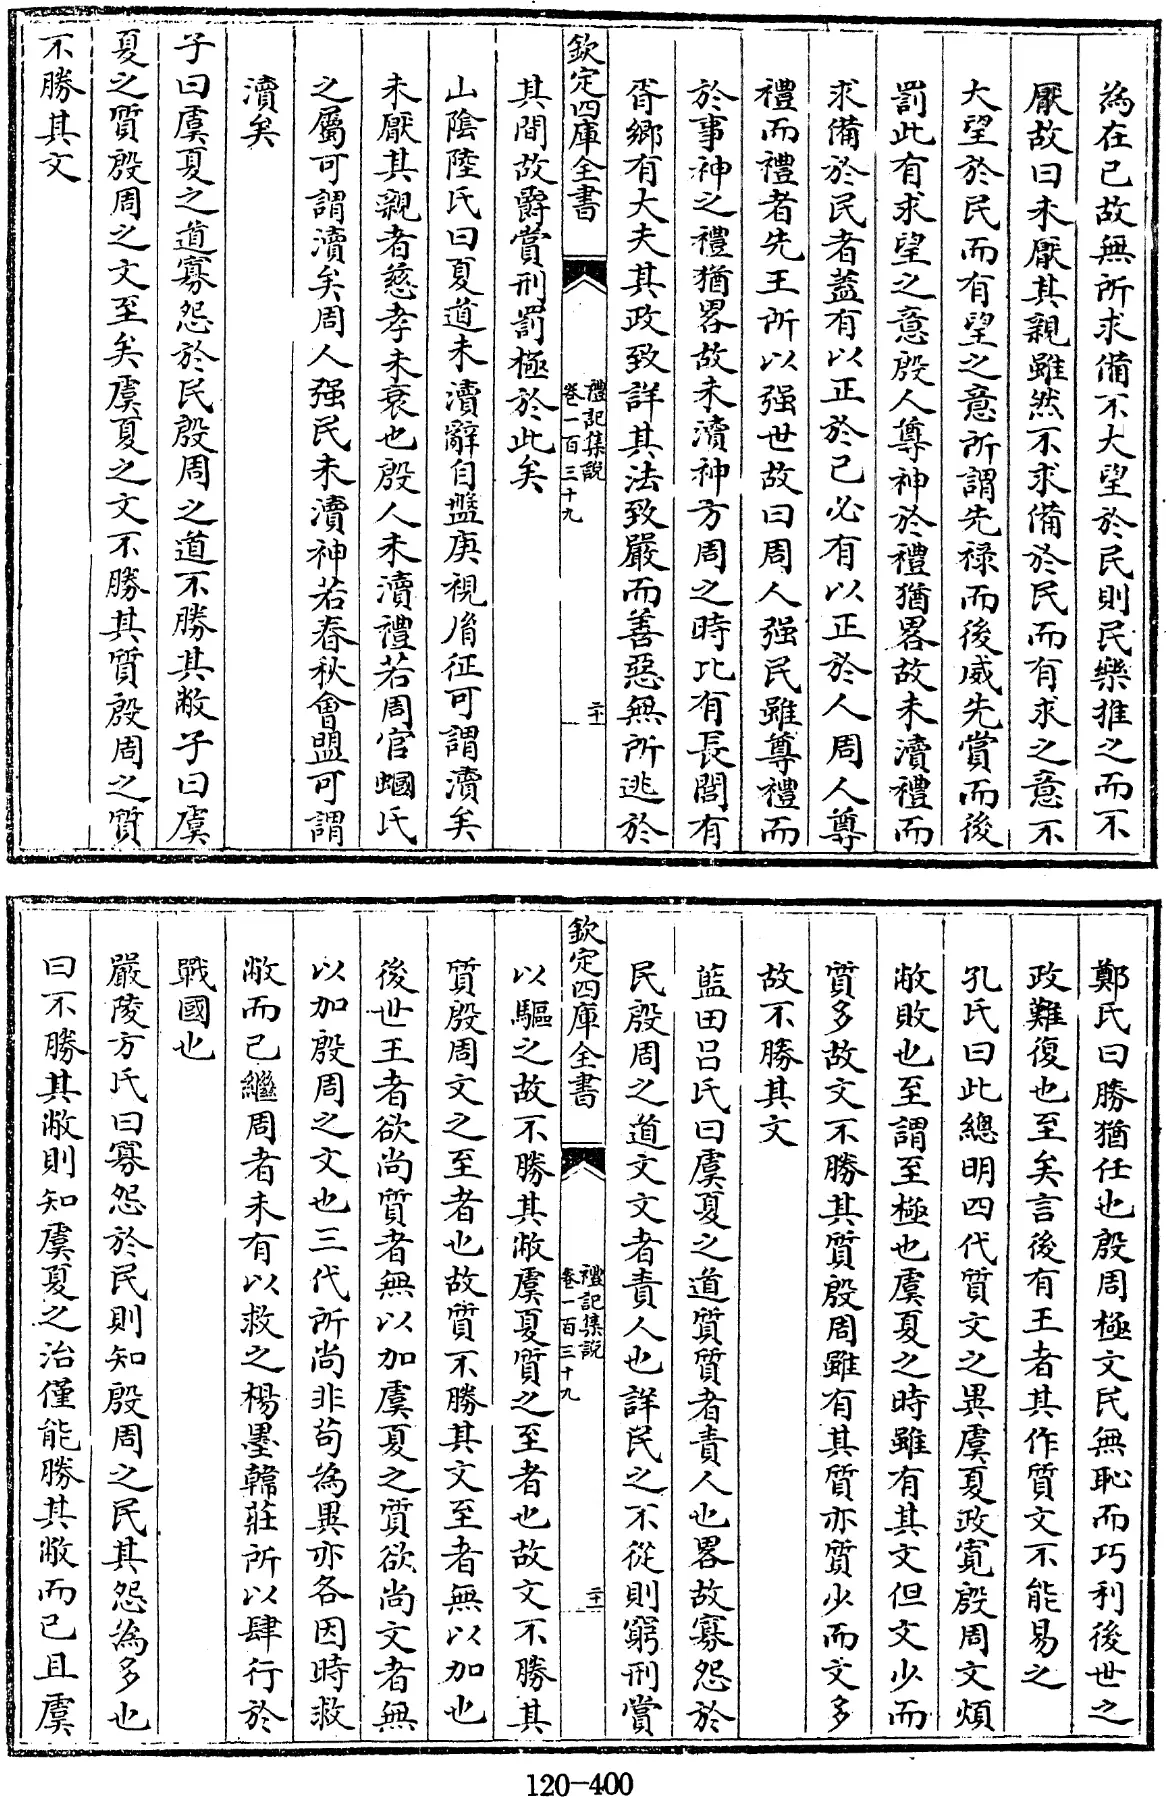 為在已故無所求備不大望於民則民樂推之而不
厭故曰未厭其親雖然不求備於民而有求之意不
大望於民而有望之意所謂先祿而後威先賞而後
罰此有求望之意殷人尊神於禮猶畧故未瀆禮而
求備於民者蓋有以正於己必有以正於人周人尊
禮而禮者先王所以强世故曰周人强民雖尊禮而
於事神之禮猶畧故未瀆神方周之時比有長閭有
胥鄉有大夫其政致詳其法致嚴而善惡無所逃於
欽定四庫全書
禮記集說
卷一百三十九
二十
其間故爵賞刑罰極於此矣
山陰陸氏曰夏道未瀆辭自盤庚視𦙍征可謂瀆矣
未厭其親者慈孝未衰也殷人未瀆禮若周官蟈氏
之屬可謂瀆矣周人强民未瀆神若春秋會盟可謂
瀆矣
子曰虞夏之道寡怨於民殷周之道不勝其敝子曰虞
夏之質殷周之文至矣虞夏之文不勝其質殷周之質
不勝其文
鄭氏曰勝猶任也殷周極文民無恥而巧利後世之
政難復也至矣言後有王者其作質文不能易之
孔氏曰此總明四代質文之異虞夏政寛殷周文煩
敝敗也至謂至極也虞夏之時雖有其文但文少而
質多故文不勝其質殷周雖有其質亦質少而文多
故不勝其文
藍田吕氏曰虞夏之道質質者責人也畧故寡怨於
民殷周之道文文者責人也詳民之不從則窮刑賞
欽定四庫全書
禮記集說
卷一百三十九
二十一
以驅之故不勝其敝虞夏質之至者也故文不勝其
質殷周文之至者也故質不勝其文至者無以加也
後世王者欲尚質者無以加虞夏之質欲尚文者無
以加殷周之文也三代所尚非苟為異亦各因時救
敝而已繼周者未有以救之楊墨韓莊所以肆行於
戰國也
嚴陵方氏曰寡怨於民則知殷周之民其怨為多也
曰不勝其敝則知虞夏之治僅能勝其敝而已且虞
120-400